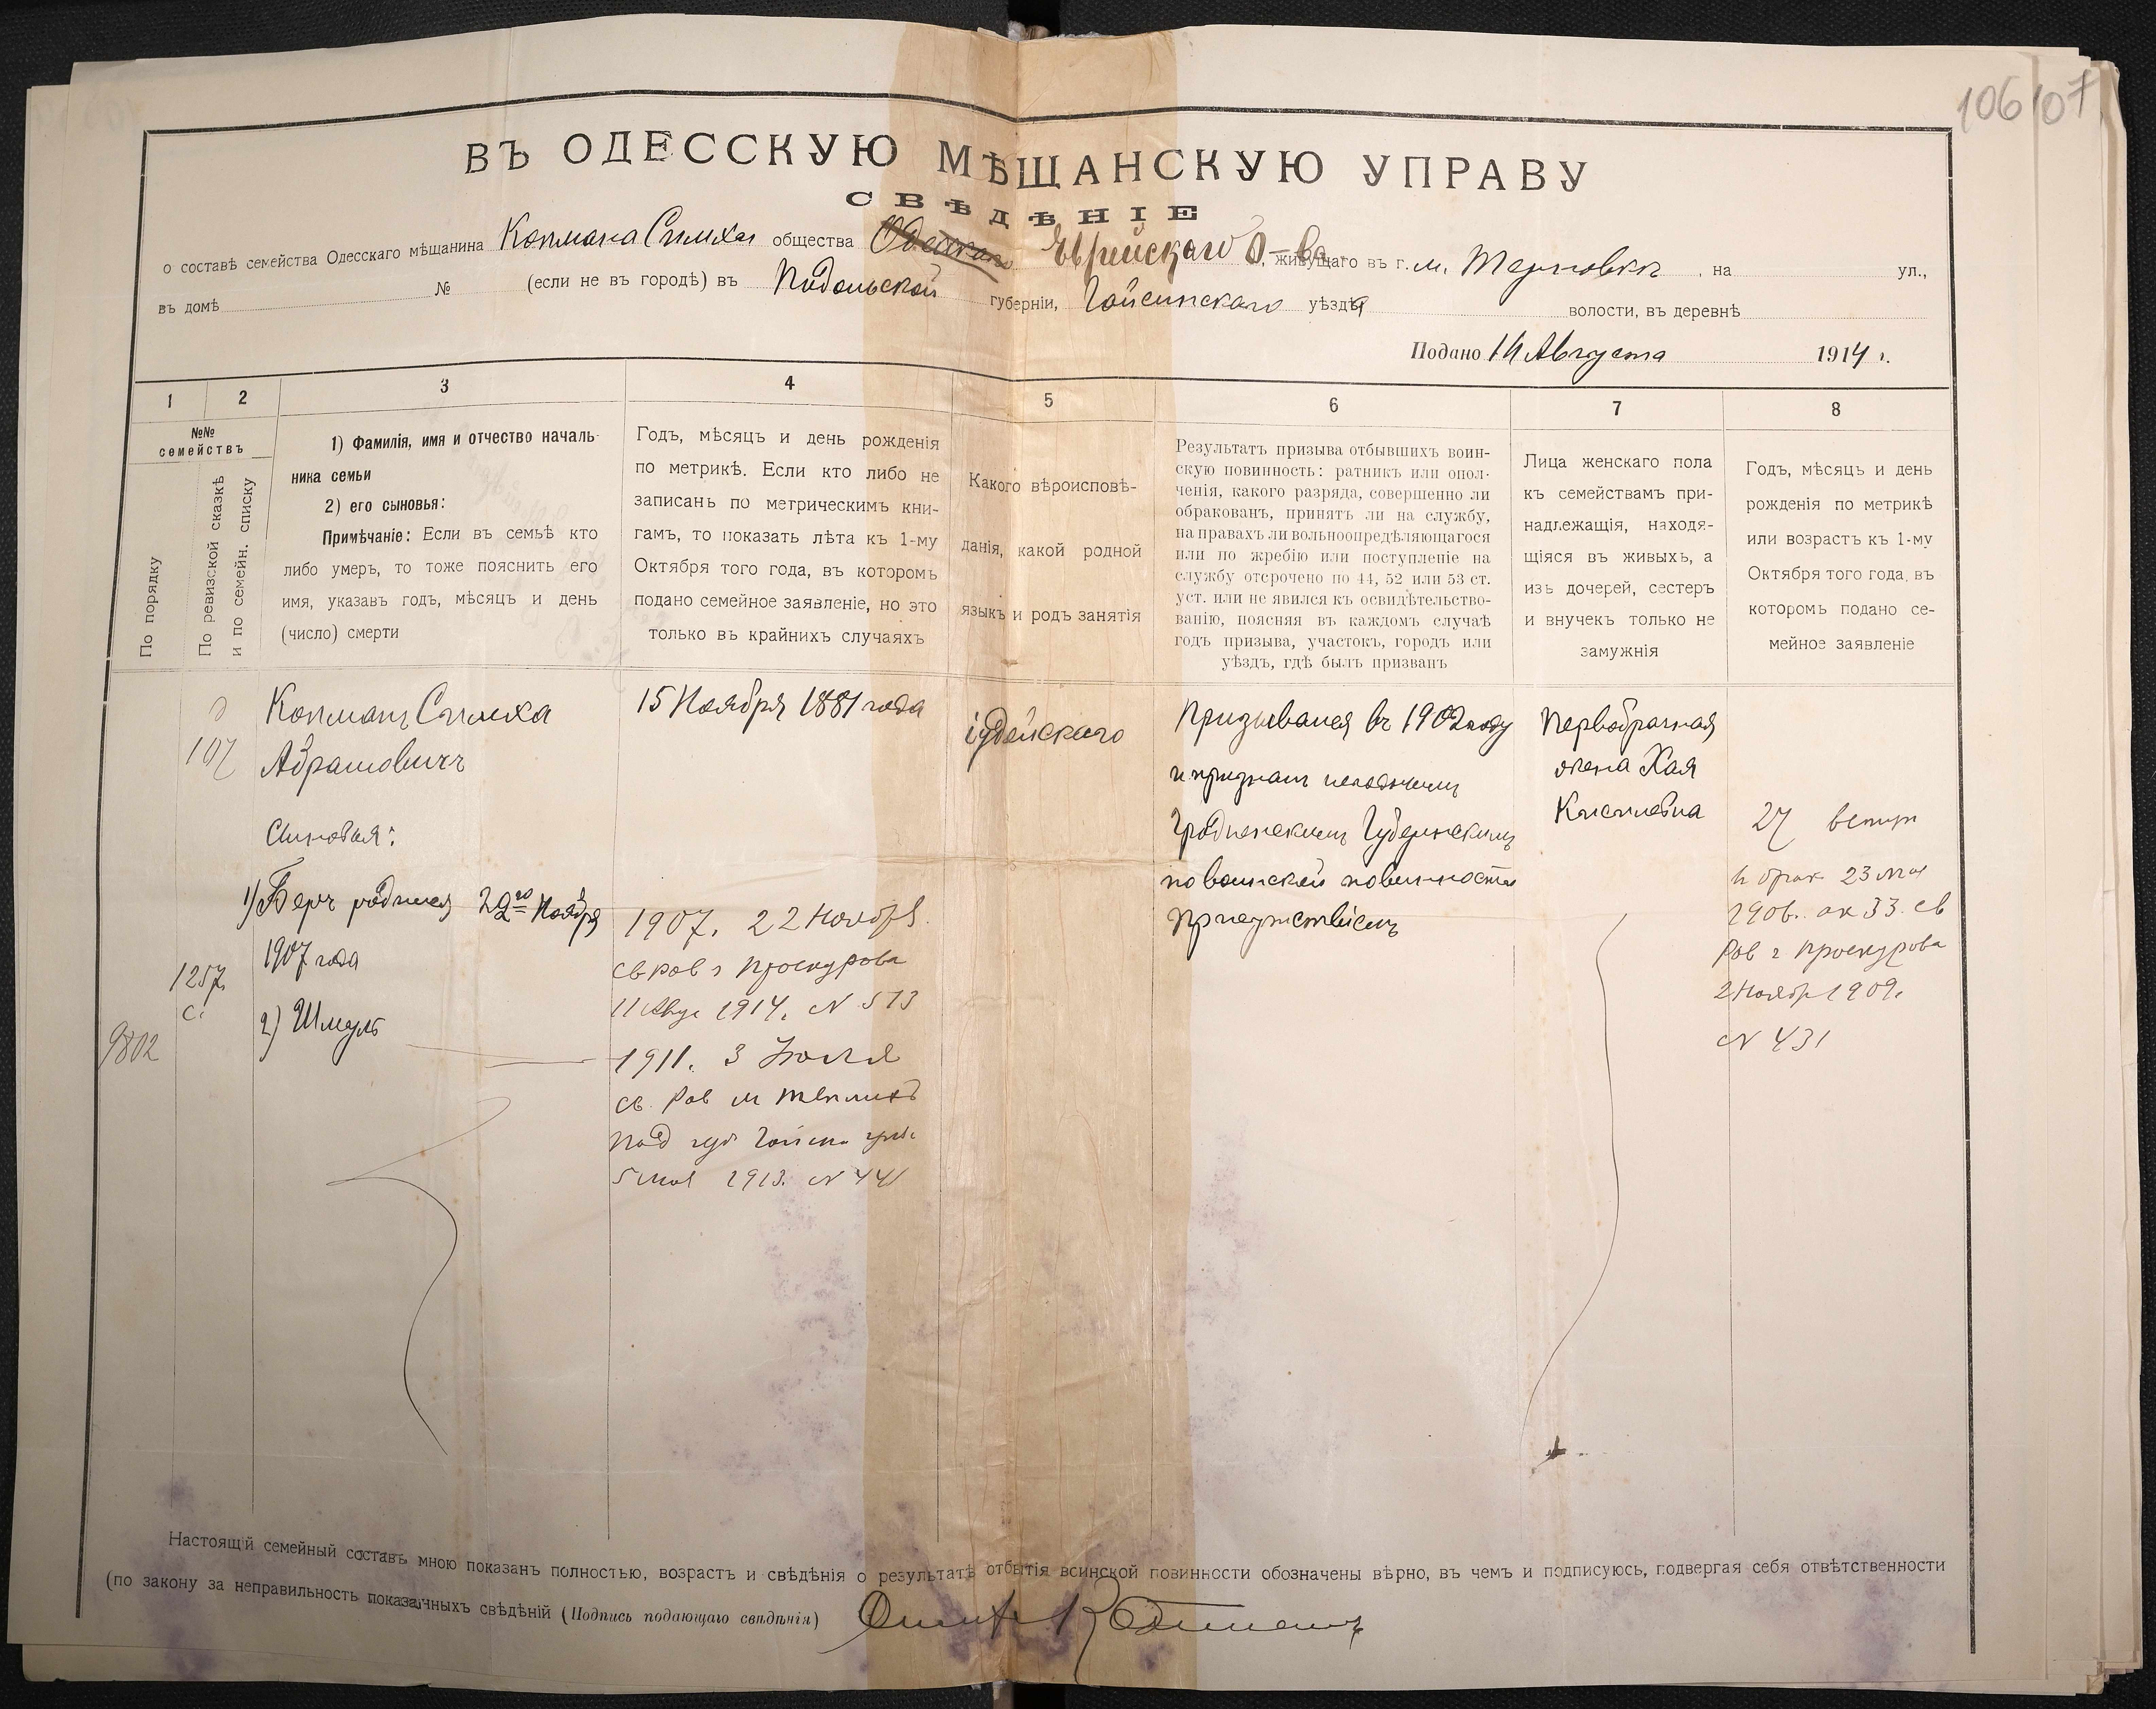 106 107
ВЪ ОДЕССКУЮ МѢЩАНСКУЮ УПРАВУ
СВѢДѢНІЕ
о составѣ семейства Одесскаго мѣщанина Копмана Симха общества Одесскаго Еврейскаго О-ва, живущаго въ г. м. Терновкѣ, на ул.,
въ домѣ № (если не въ городѣ) въ Подольской губерніи, Гайсинскаго уѣзда волости, въ деревнѣ
Подано 14 Августа 1914 г.
1 2 3 4 5 6 7 8
№№ семействъ
По порядку
По ревизской сказкѣ
и по семейн. списку
1) Фамилія, имя и отчество началь-
ника семьи
2) его сыновья:
Примѣчаніе: Если въ семьѣ кто
либо умеръ, то тоже пояснить его
имя, указавъ годъ, мѣсяцъ и день
(число) смерти
Годъ, мѣсяцъ и день рожденія
по метрикѣ. Если кто либо не
записанъ по метрическимъ кни-
гамъ, то показать лѣта къ 1-му
Октября того года, въ которомъ
подано семейное заявленіе, но это
только въ крайнихъ случаяхъ
Какого вѣроисповѣ-
данія, какой родной
языкъ и родъ занятія
Результатъ призыва отбывшихъ воин-
скую повинность: ратникъ или опол-
ченія, какого разряда, совершенно ли
обракованъ, принятъ ли на службу,
на правахъ ли вольноопредѣляющагося
или по жребію или поступленіе на
службу отсрочено по 44, 52 или 53 ст.
уст. или не явился къ освидѣтельство-
ванію, поясняя въ каждомъ случаѣ
годъ призыва, участокъ, городъ или
уѣздъ, гдѣ былъ призванъ
Лица женскаго пола
къ семействамъ при-
надлежащія, находя-
щіяся въ живыхъ, а
изъ дочерей, сестеръ
и внучекъ только не
замужнія
Годъ, мѣсяцъ и день
рожденія по метрикѣ
или возрастъ къ 1-му
Октября того года, въ
которомъ подано се-
мейное заявленіе
107
1257
с.
9802
Копманъ Симха
Абрамовичъ
Сыновья:
1) Беръ родился 22го Ноября
1907 года
2) Шмуль
15 Ноября 1881 года
1907. 22 Ноября.
св рав г Проскурова
11 Авгу 1914. N 573
1911. 3 Іюля
св. Рав м Теплика
Под губ Гайси
5 мая 1913. N 441
іудейскаго
Призывался въ 1902 году
и признанъ негоднымъ
Гродненскимъ Губернскимъ
по воинской повинности
Присутствіемъ
Первобрачная
жена Хая
27 вступ
в брак 23 мая
1906. ак 33. св
Рав г Проскурова
2 Ноябр 1909.
N 431
Настоящій семейный составъ мною показанъ полностью, возрастъ и свѣдѣнія о результатѣ отбытія воинской повинности обозначены вѣрно, въ чемъ и подписуюсь, подвергая себя отвѣтственности
(по закону за неправильность показанныхъ свѣдѣній (Подпись подающаго свѣдѣнія)